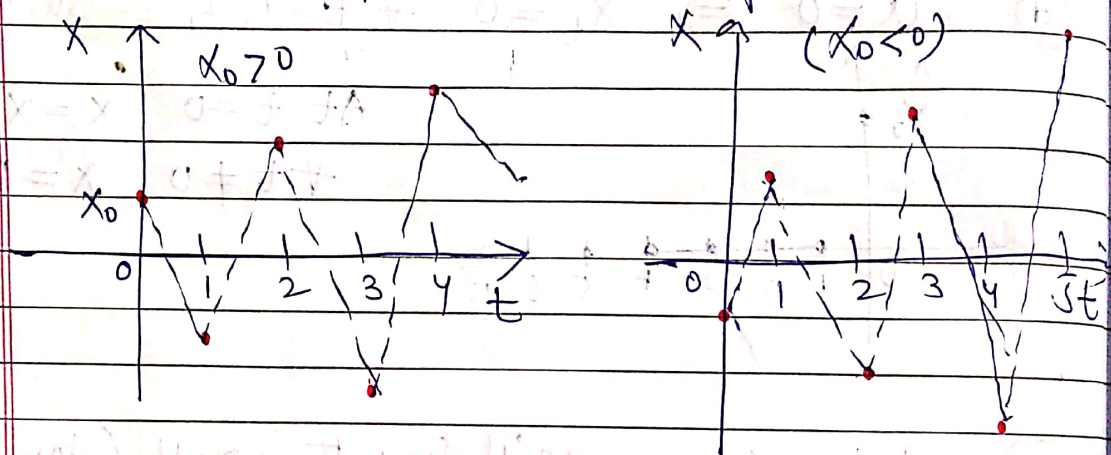 X
x₀>0
X₀
0
1
2
3
4
t
X
(x₀<0)
0
1
2
3
4
5t